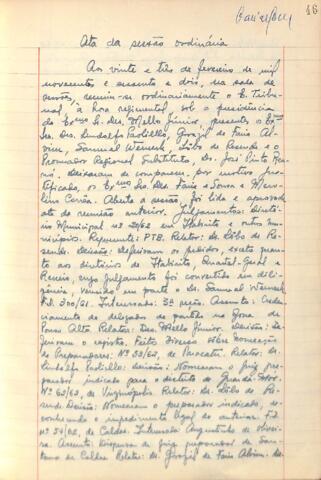 16
Ata da sessão ordinária
Aos vinte e três de fevereiro de mil
novecentos e sessenta e dois, na sala de
sessões, reuniu-se ordinariamente o E. Tribu-
nal, à hora regimental, sob a presidência
do Exmo Sr. Des. Mello Júnior, presentes os Exmos
Srs. Drs. Lindolfo Portilho, Geraldo de Faria Al-
vim, Samuel Werneck, Lôbo de Resende e o
Procurador Regional Substituto, Dr. José Pinto
Deixaram de comparecer, por motivo jus-
tificado, os Exmos Srs. Des. Faria e Sousa e
Corrêa. Aberta a sessão, foi lida e aprovada
ata da reunião anterior. Julgamentos: Diretó-
rio Municipal nº 20/62 em Itabirito e outros mu-
nicípios. Requerente: PTB. Relator: Dr. Lôbo de Re-
sende. Decisão: deferiram os pedidos, exceto quan-
to aos diretórios de Itabirito, Quartel-Geral e
cujo julgamento foi convertido em dili-
gência, vencido em parte o Dr. Samuel Werneck.
P.D. 300/61. Interessado: 3ª seção. Assunto: Creden-
ciamento de delegados de partido na Zona de
Pouso Alto. Relator: Des. Mello Júnior. Decisão: De-
feriram o registro. Feitos Diversos sôbre nomeação
de Preparadores: Nº 53/62, de Paracatu. Relator: Dr.
Lindolfo Portilho: decisão: Nomearam o juiz pre-
parador indicado para o distrito de Guarda-Mor.
Nº 63/62, de Virginópolis. Relator: Dr. Lôbo de Re-
sende. Decisão: Nomearam o preparador indicado, re-
conhecendo o impedimento legal do anterior. P.D.
nº 54/62, de Caldas. Interessado Augustinho de Olivei-
ra. Assunto: Dispensa de juiz preparador de San-
tana de Caldas. Relator: Dr. Geraldo de Faria Alvim. de-